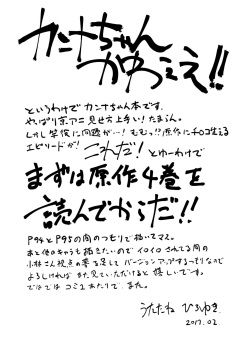 カンナちゃん
かわええ!!
というわけでカンナちゃん本です。
やっぱり京アニ見せ方上手い!たまらん。
しかし学校に問題が…!ももっ!?原作にチョロ生える
エピソードが!
これだ!とゆーわけで
まずは原作4巻を
読んでからだ!!
P94とP95の間のつもりで描いてます。
あと他のキャラも描きたいのでイロイロされてる間の
小林さん視点の夢を足してバージョンアップするつもりなので
よろしければまた見ていただけると嬉しいです。
ではではコミ1あたりで。また。
うたたね ひろゆき
2017.02.